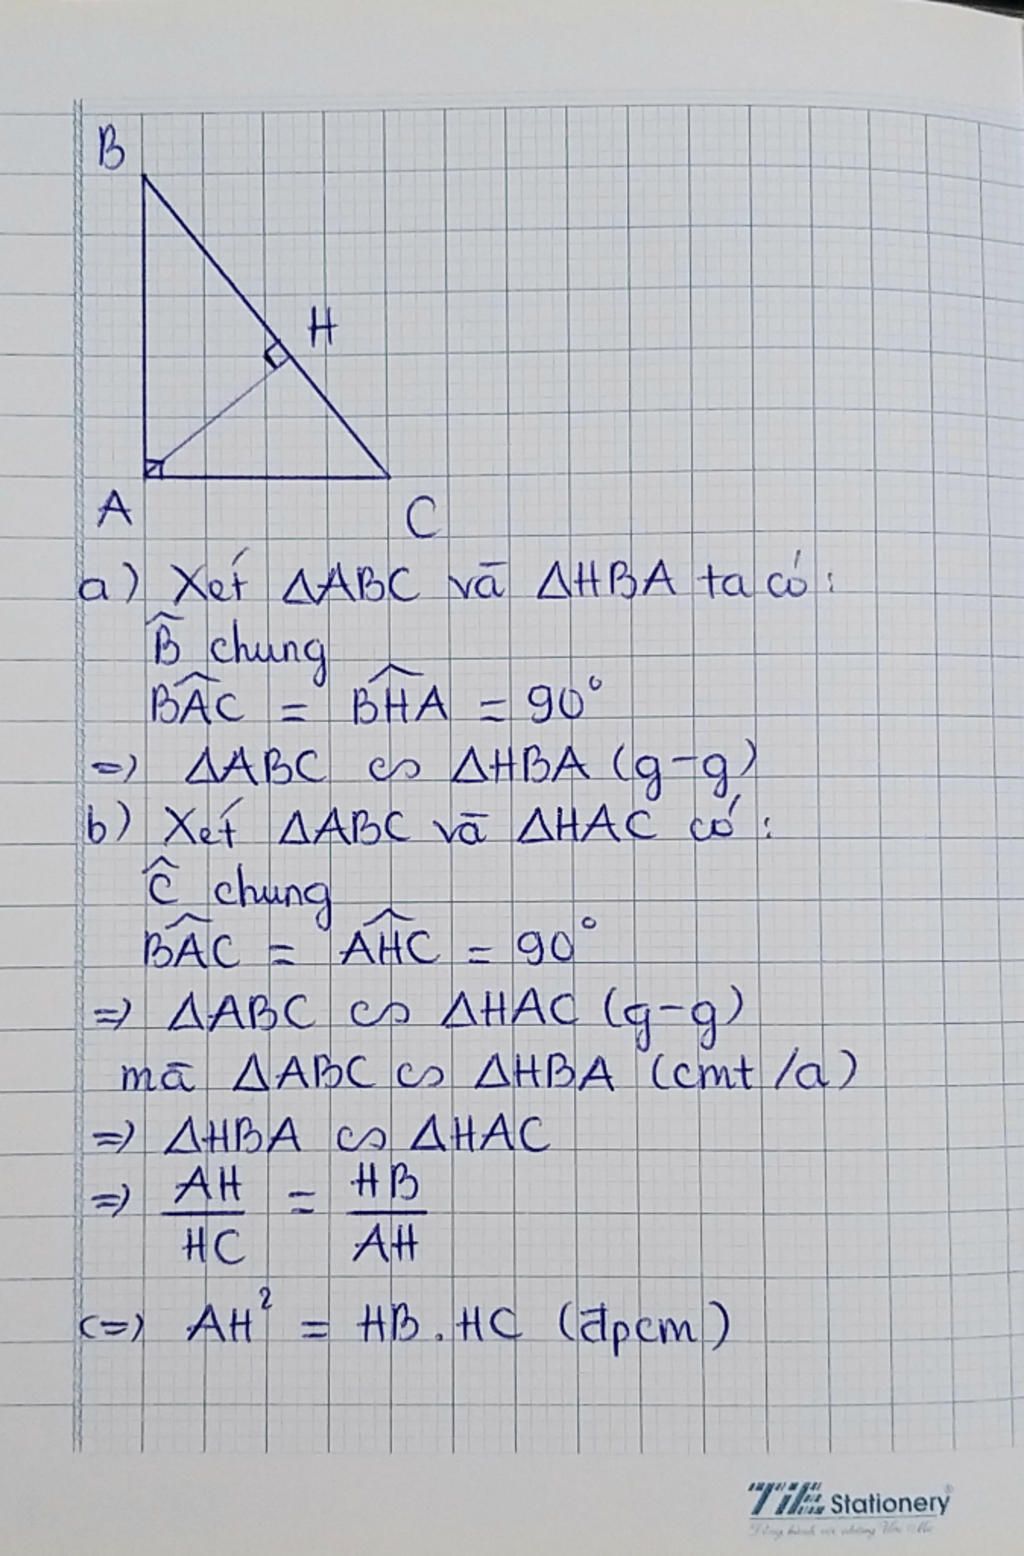 B
H
A
C
a) Xét ΔABC và ΔHBA ta có:
B̂ chung
B͡AC = B͡HA = 90°
=) ΔABC ∽ ΔHBA (g-g)
b) Xét ΔABC và ΔHAC có:
Ĉ chung
B͡AC = A͡HC = 90°
=) ΔABC ∽ ΔHAC (g-g)
mà ΔABC ∽ ΔHBA (cmt/a)
=) ΔHBA ∽ ΔHAC
=) AH/HC = HB/AH
(=) AH² = HB.HC (đpcm)
TiE Stationery